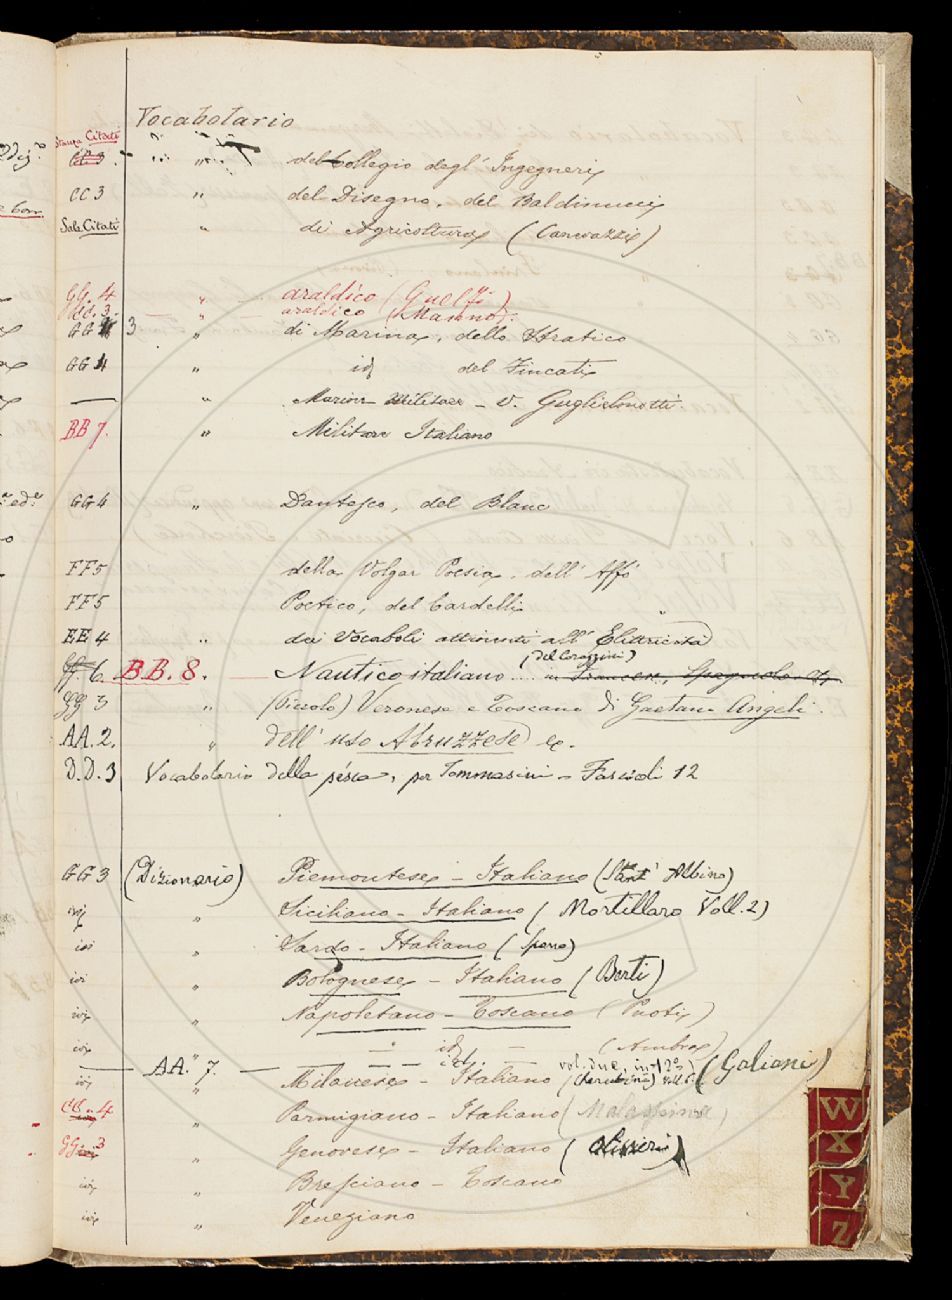 Vocabolario
Stanza Citati
CC 3. " del Collegio degl' Ingegneri
CC 3 " del Disegno, del Baldinucci
Sala Citati " di Agricoltura (Canevazzi)
GG. 4 " araldico (Guelfi)
CC. 3. " araldico (Manno).
GG 3 " di Marina, dello Stratico
GG 4 " id del Fincati
— " Marina Militare - V. Guglielmotti.
BB 7. " Militare Italiano
GG4 " Dantesco, del Blanc
FF5 della Volgar Poesia, dell' Affò
FF5 Poetico, del Cardelli "
EE 4 " dei Vocaboli attinenti all' Elettricità
(del Corazzini)
ff. 6. BB. 8. — Nautico italiano .... in Francese, Spagnolo
GG 3 " (Piccolo) Veronese e Toscano di Gaetano Angeli.
AA. 2. " dell' uso Abruzzese ec.
D.D. 3 Vocabolario della pésca, per Tommasini - Fascicoli 12
GG3 (Dizionario) Piemontese - Italiano (Sant' Albino)
ivi " Siciliano - Italiano (Mortillaro Voll. 2)
ivi " Sardo - Italiano (Spano)
ivi " Bolognese - Italiano (Berti)
ivi " Napoletano - Toscano (Puoti)
ivi " — id — (Ambra)
— AA. 7. — — id. — vol. due, in 12° (Galiani)
ivi " Milanese - Italiano (Cherubini)
CC. 4 " Parmigiano - Italiano (Malaspina)
GG 3 " Genovese - Italiano (Olivieri)
ivi " Bresciano - Toscano
ivi " Veneziano
W
X
Y
Z